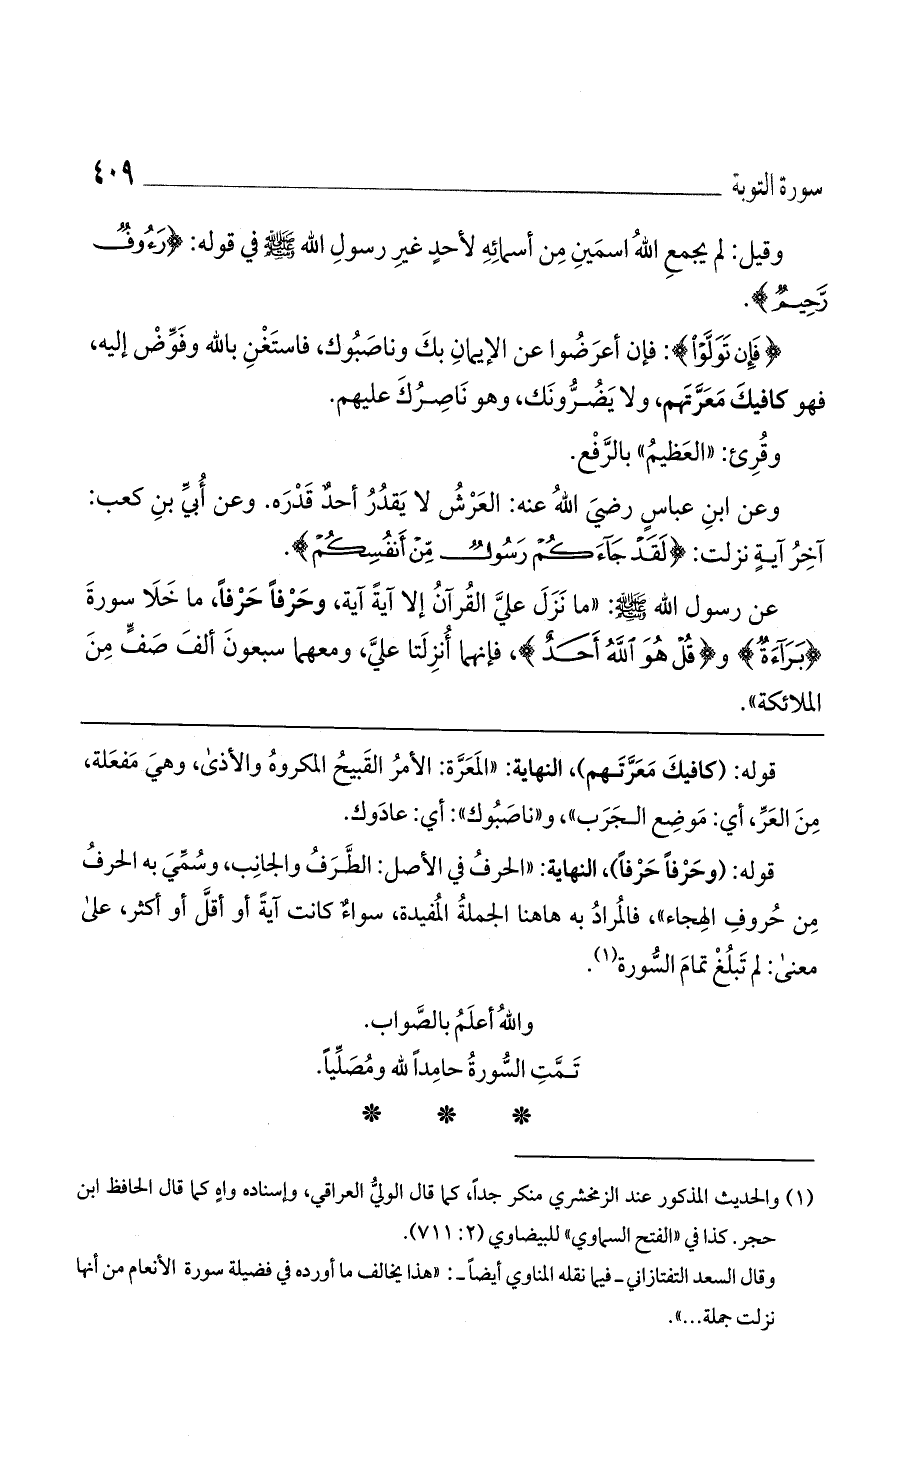 سورة التوبة ٤٠٩
وقيل: لم يجمعِ اللهُ اسمَينِ مِن أسمائِهِ لأحدٍ غيرِ رسولِ الله ﷺ في قوله: ﴿رَءُوفٌ
رَّحِيمٌ﴾.
﴿فَإِن تَوَلَّوْاْ﴾: فإن أعرَضُوا عن الإيمانِ بكَ وناصَبُوك، فاستَغْنِ بالله وفَوِّضْ إليه،
فهو كافيكَ مَعَرَّتَهم، ولا يَضُرُّونَك، وهو نَاصِرُكَ عليهم.
وقُرِئ: «العَظيمُ» بالرَّفْع.
وعن ابنِ عباسٍ رضيَ اللهُ عنه: العَرْشُ لا يَقدُرُ أحدٌ قَدْرَه. وعن أُبيِّ بنِ كعب:
آخِرُ آيةٍ نزلت: ﴿لَقَدْ جَآءَكُمْ رَسُولٌ مِّنْ أَنفُسِكُمْ﴾.
عن رسول الله ﷺ: «ما نَزَلَ عليَّ القُرآنُ إلا آيةً آية، وحَرْفاً حَرْفاً، ما خَلَا سورةَ
﴿بَرَآءَةٌ﴾ و﴿قُلْ هُوَ ٱللَّهُ أَحَدٌ﴾، فإنهما أُنزِلَتا عليَّ، ومعهما سبعونَ ألفَ صَفٍّ مِنَ
الملائكة».
قوله: (كافيكَ مَعَرَّتَهم)، النهاية: «المَعَرَّة: الأمرُ القَبيحُ المكروهُ والأذىٰ، وهيَ مَفعَلة،
مِنَ العَرِّ، أي: مَوضِع الجَرَب»، و«ناصَبُوك»: أي: عادَوك.
قوله: (وحَرْفاً حَرْفاً)، النهاية: «الحرفُ في الأصل: الطَّرَفُ والجانِب، وسُمِّيَ به الحرفُ
مِن حُروفِ الهِجاء»، فالمُرادُ به هاهنا الجملةُ المُفيدة، سواءٌ كانت آيةً أو أقلَّ أو أكثر، علىٰ
معنىٰ: لم تَبلُغْ تمامَ السُّورة(١).
واللهُ أعلَمُ بالصَّواب.
تَمَّتِ السُّورةُ حامِداً لله ومُصَلِّياً.
* * *
(١) والحديث المذكور عند الزمخشري منكر جداً، كما قال الوليُّ العراقي، وإسناده واهٍ كما قال الحافظ ابن
حجر. كذا في «الفتح السماوي» للبيضاوي (٢: ٧١١).
وقال السعد التفتازاني ـ فيما نقله المناوي أيضاً ـ: «هذا يخالف ما أورده في فضيلة سورة الأنعام من أنها
نزلت جملة...».